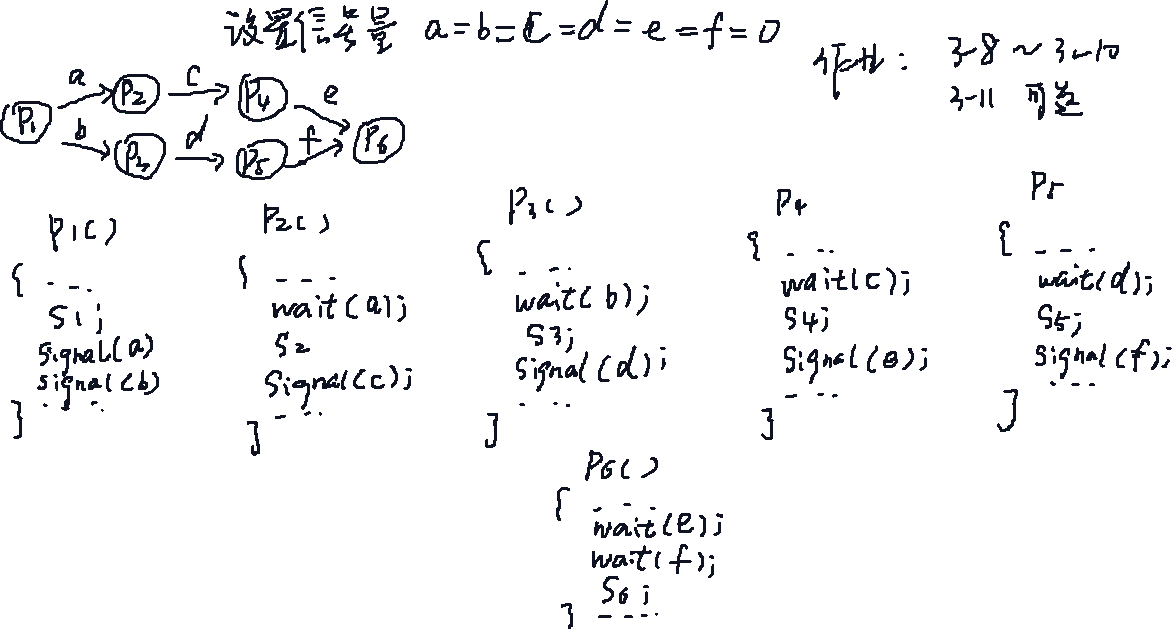 设置信号量 a=b=c=d=e=f=0
作业: 3-8 ~ 3-10
3-11 可选
a c e
P1 P2 P4 P6
b d f
P3 P5
P1()
{ ....
S1;
signal(a)
signal(b)
....
}
P2()
{ ....
wait(a);
S2
signal(c);
....
}
P3()
{ ....
wait(b);
S3;
signal(d);
....
}
P4
{ ....
wait(c);
S4;
signal(e);
....
}
P5
{ ....
wait(d);
S5;
signal(f);
....
}
P6()
{ ....
wait(e);
wait(f);
S6;
} ....